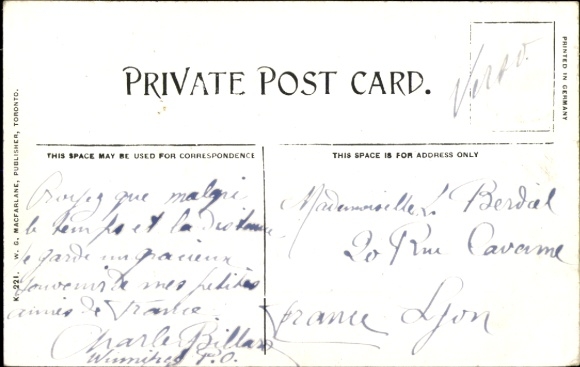 PRIVATE POST CARD.
Verso.
PRINTED IN GERMANY
K-221. W. G. MACFARLANE, PUBLISHER, TORONTO.
THIS SPACE MAY BE USED FOR CORRESPONDENCE
Croyez que malgré
le temps et la distance
je garde un gracieux
souvenir de mes petites
amies de France
Charles Billard
Winnipeg P.O.
THIS SPACE IS FOR ADDRESS ONLY
Mademoiselle L. Berdiel
20 Rue Caverne
France Lyon